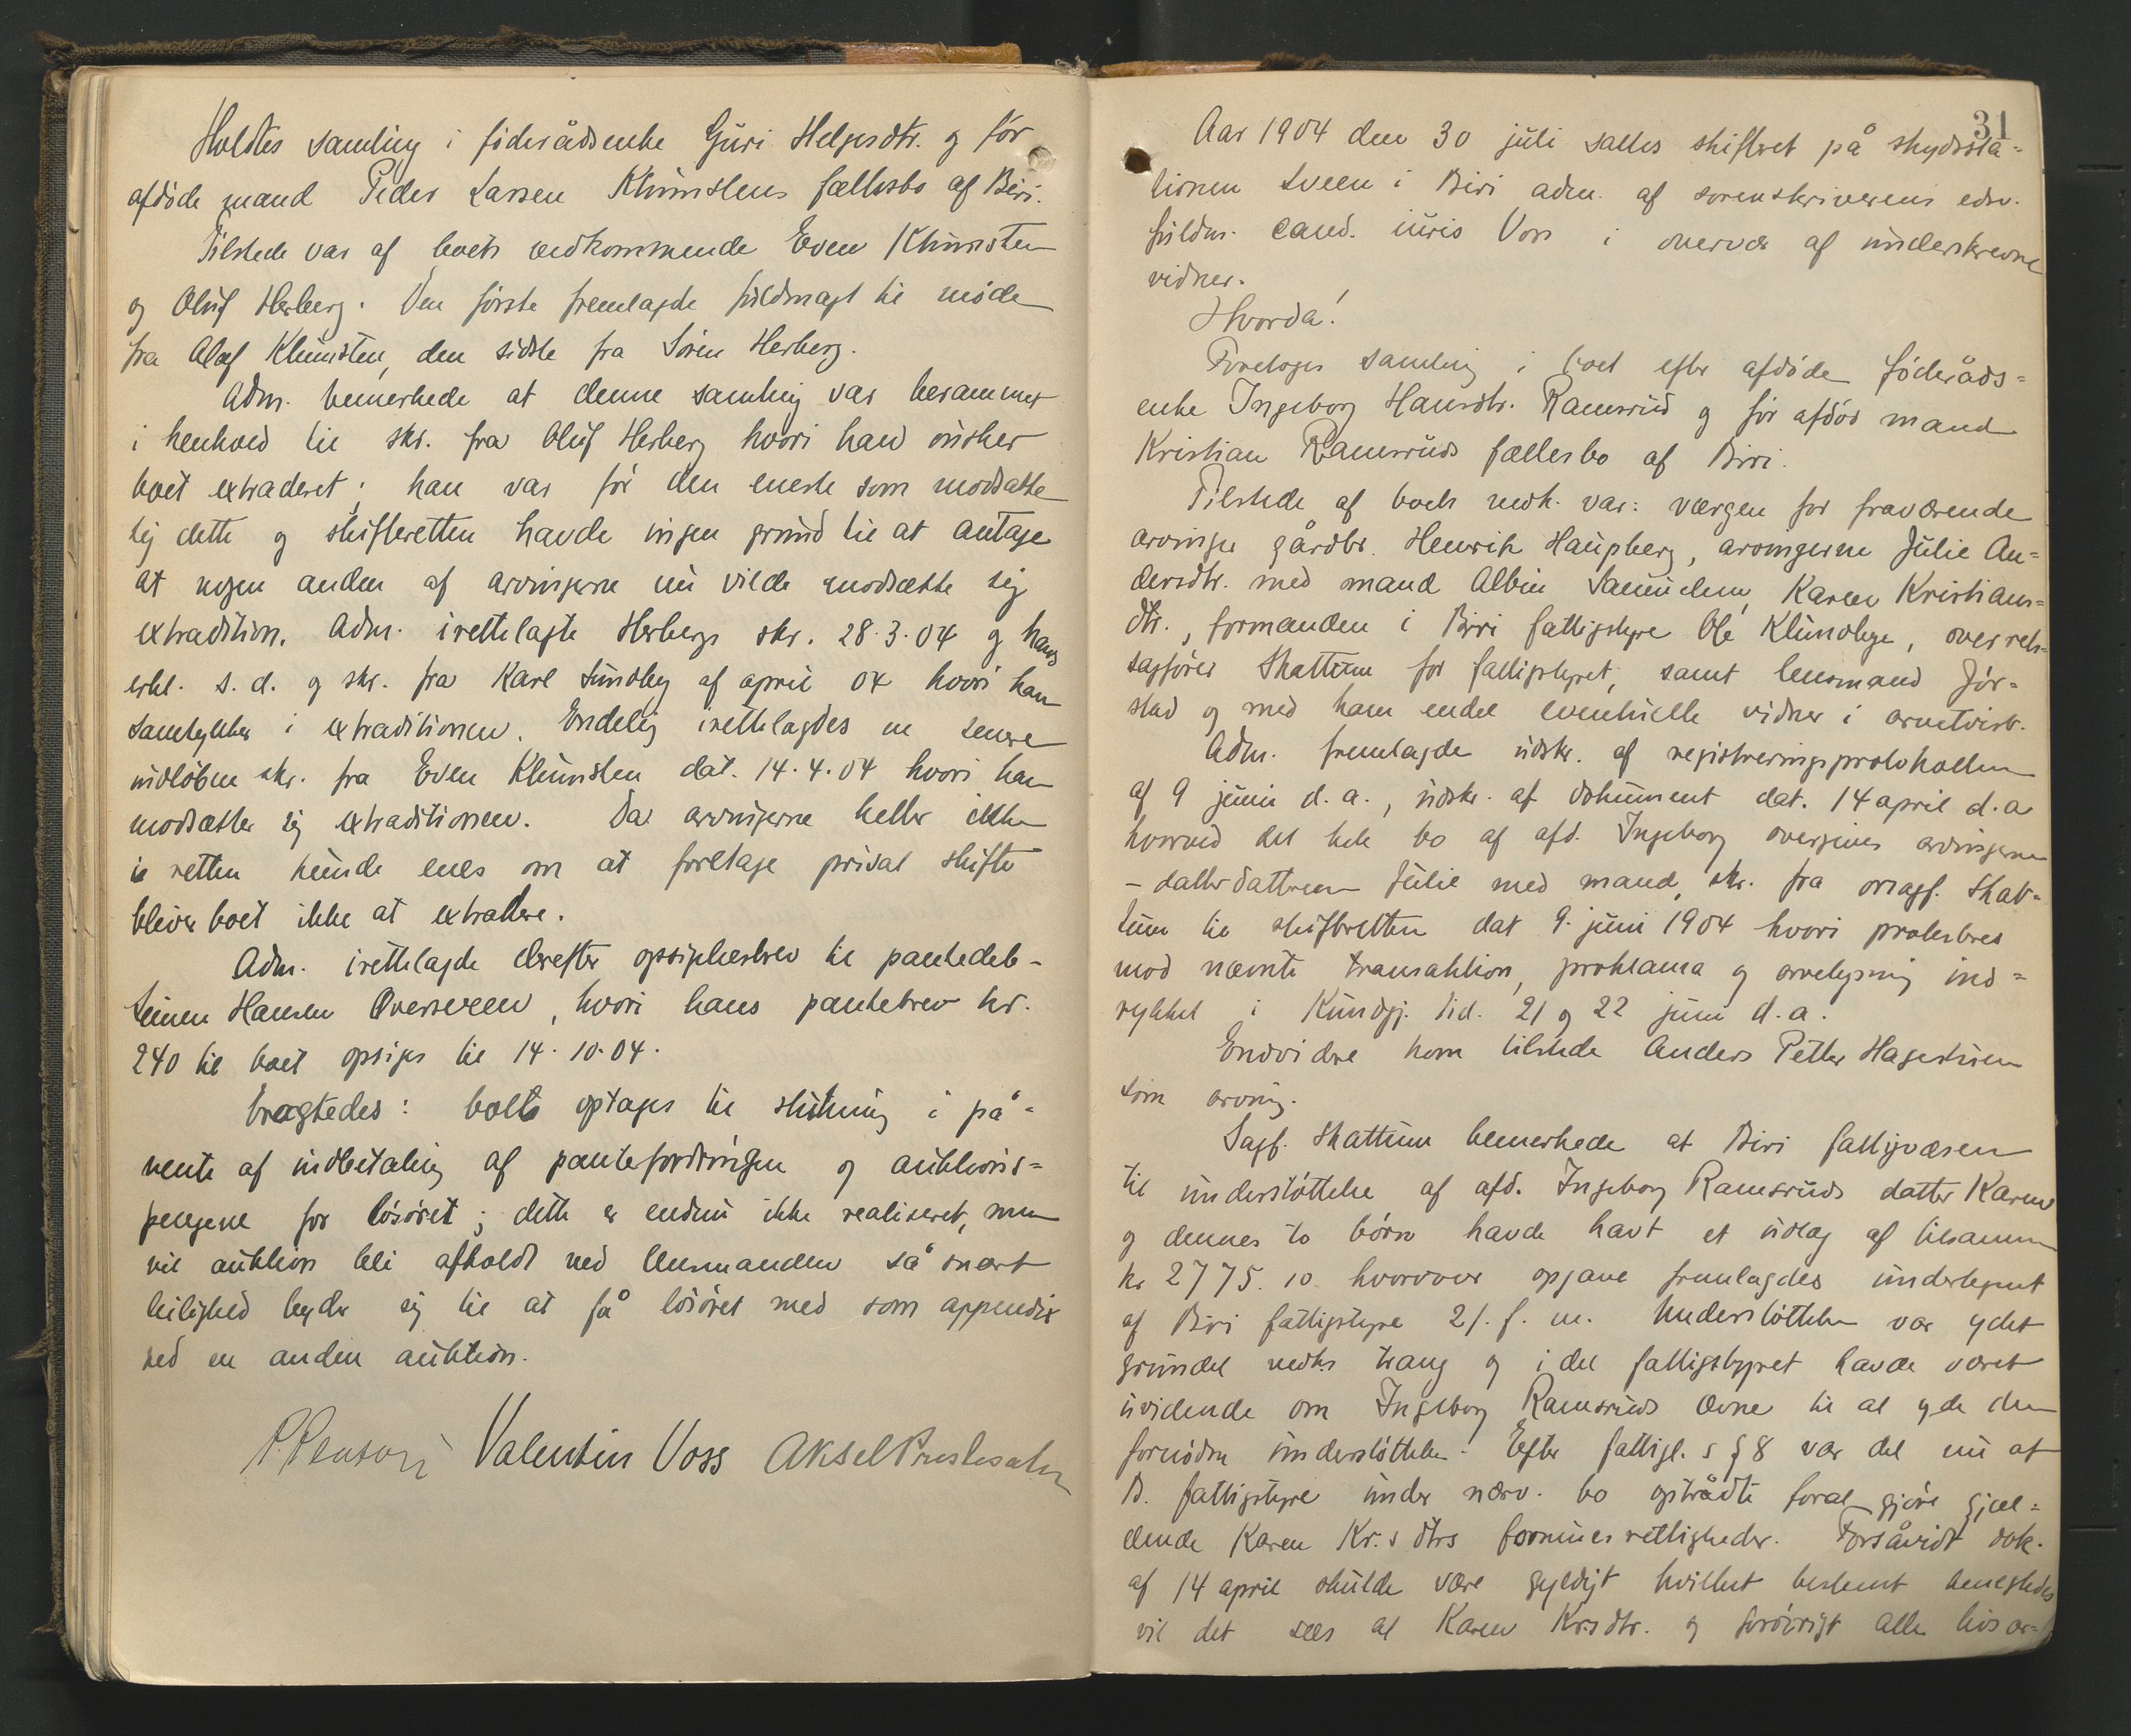 Holdtes samling i føderådsenke Guri Helgesdtr. og før
afdøde mand Peder Larsen Klunstens fællesbo af Biri.
Tilstede var af boets vedkommende Even Klunsten
og Oluf Herberg. Den første fremlagde fuldmagt til møde
fra Olaf Klunsten, den sidste fra Søren Herberg.
Adm. bemerkede at denne samling var berammet
i henhold til skr. fra Oluf Herberg hvori han ønsker
boet extraderet; han var før den eneste som modsatte
sig dette og skifteretten havde ingen grund til at antage
at nogen anden af arvingerne nu vilde modsætte sig
extradition. Adm. irettelagte Herbergs skr. 28.3.04 og hans
erkl. s.d. og skr. fra Karl Sundby af april 04 hvori han
samtykker i extraditionen. Endelig irettelagdes en senere
indløben skr. fra Even Klunsten dat. 14.4.04 hvori han
modsætter sig extraditionen. Da arvingerne heller ikke
i retten kunde enes om at foretage privat skifte
bliver boet ikke at extradere.
Adm. irettelagde derefter opsigelsesbrev til pantedeb-
Hansen Oversveen, hvori hans pantebrev kr.
240 til boet opsiges til 14.10.04.
bragtedes: boet optages til slutning i på=
vente af indbetaling af pantefordringen og auktions=
pengene for løsøret; dette er endnu ikke realiseret, men
vil auktion bli afholdt ved lensmanden så snart
leilighed byder sig til at få løsøret med som appendix
ved en anden auktion.
Valentin Voss Aksel Prestesæter
31
Aar 1904 den 30 juli sattes skifteret på skydssta=
tionen Sveen i Biri adm. af sorenskriverens edsv.
fuldm. cand. iuris Voss i overvær af underskrevne
vidner.
Hvorda!
Foretoges samling i boet efter afdøde føderåds=
enke Ingeborg Hansdtr. Ramsrud og før afdød mand
Kristian Ramsruds fællesbo af Biri.
Tilstede af boets vedk. var: værgen for fraværende
arvinger gårdbr. Henrik Haugberg, arvingerne Julie An=
dersdtr. med mand Albin Samuelsen, Karen Kristians=
dtr., formanden i Biri fattigstyre Ole Klundbye, overrets=
sagfører Skattum for fattigstyret, samt lensmand Jør=
stad og med ham endel eventuelle vidner i arvetvist.
Adm. fremlagde udskr. af registreringsprotokollen
af 9 juni d.a., udskr. af dokument dat. 14 april d.a
hvorved det hele bo af afd. Ingeborg overgives arvingerne
- datterdatteren Julie med mand, skr. fra orsagf. Skat=
tum til skifteretten dat 9. juni 1904 hvori protesteres
mod nævnte transaktion, proklama og arvelysning ind=
rykket i Kundgj. tid. 21 og 22 juni d.a.
Endvidere kom tilstede Anders Petter Hagestuen
som arving.
Sagf. Skattum bemerkede at Biri fattigvæsen
til understøttelse af afd. Ingeborg Ramsruds datter Karen
og dennes to børn havde havt et udlæg af tilsammen
kr 2775.10 hvorover opgave fremlagdes undertegnet
af Biri fattigstyre 21. f. m. Understøttelsen var ydet
grundet vedk.s trang og idet fattigstyret havde været
uvidende om Ingeborg Ramsruds ævne til at yde den
fornødne understøttelse. Efter fattigl.s § 8 var det nu at
B. fattigstyre under nærv. bo optrådte for at gjøre gjæl=
dende Karen Kr.s dtrs formuesrettigheder. Forsåvidt dok.
af 14 april skulde være gyldigt hvilket bestemt benegtedes
vil det sees at Karen Krsdtr. og forøvrigt alle livsar=